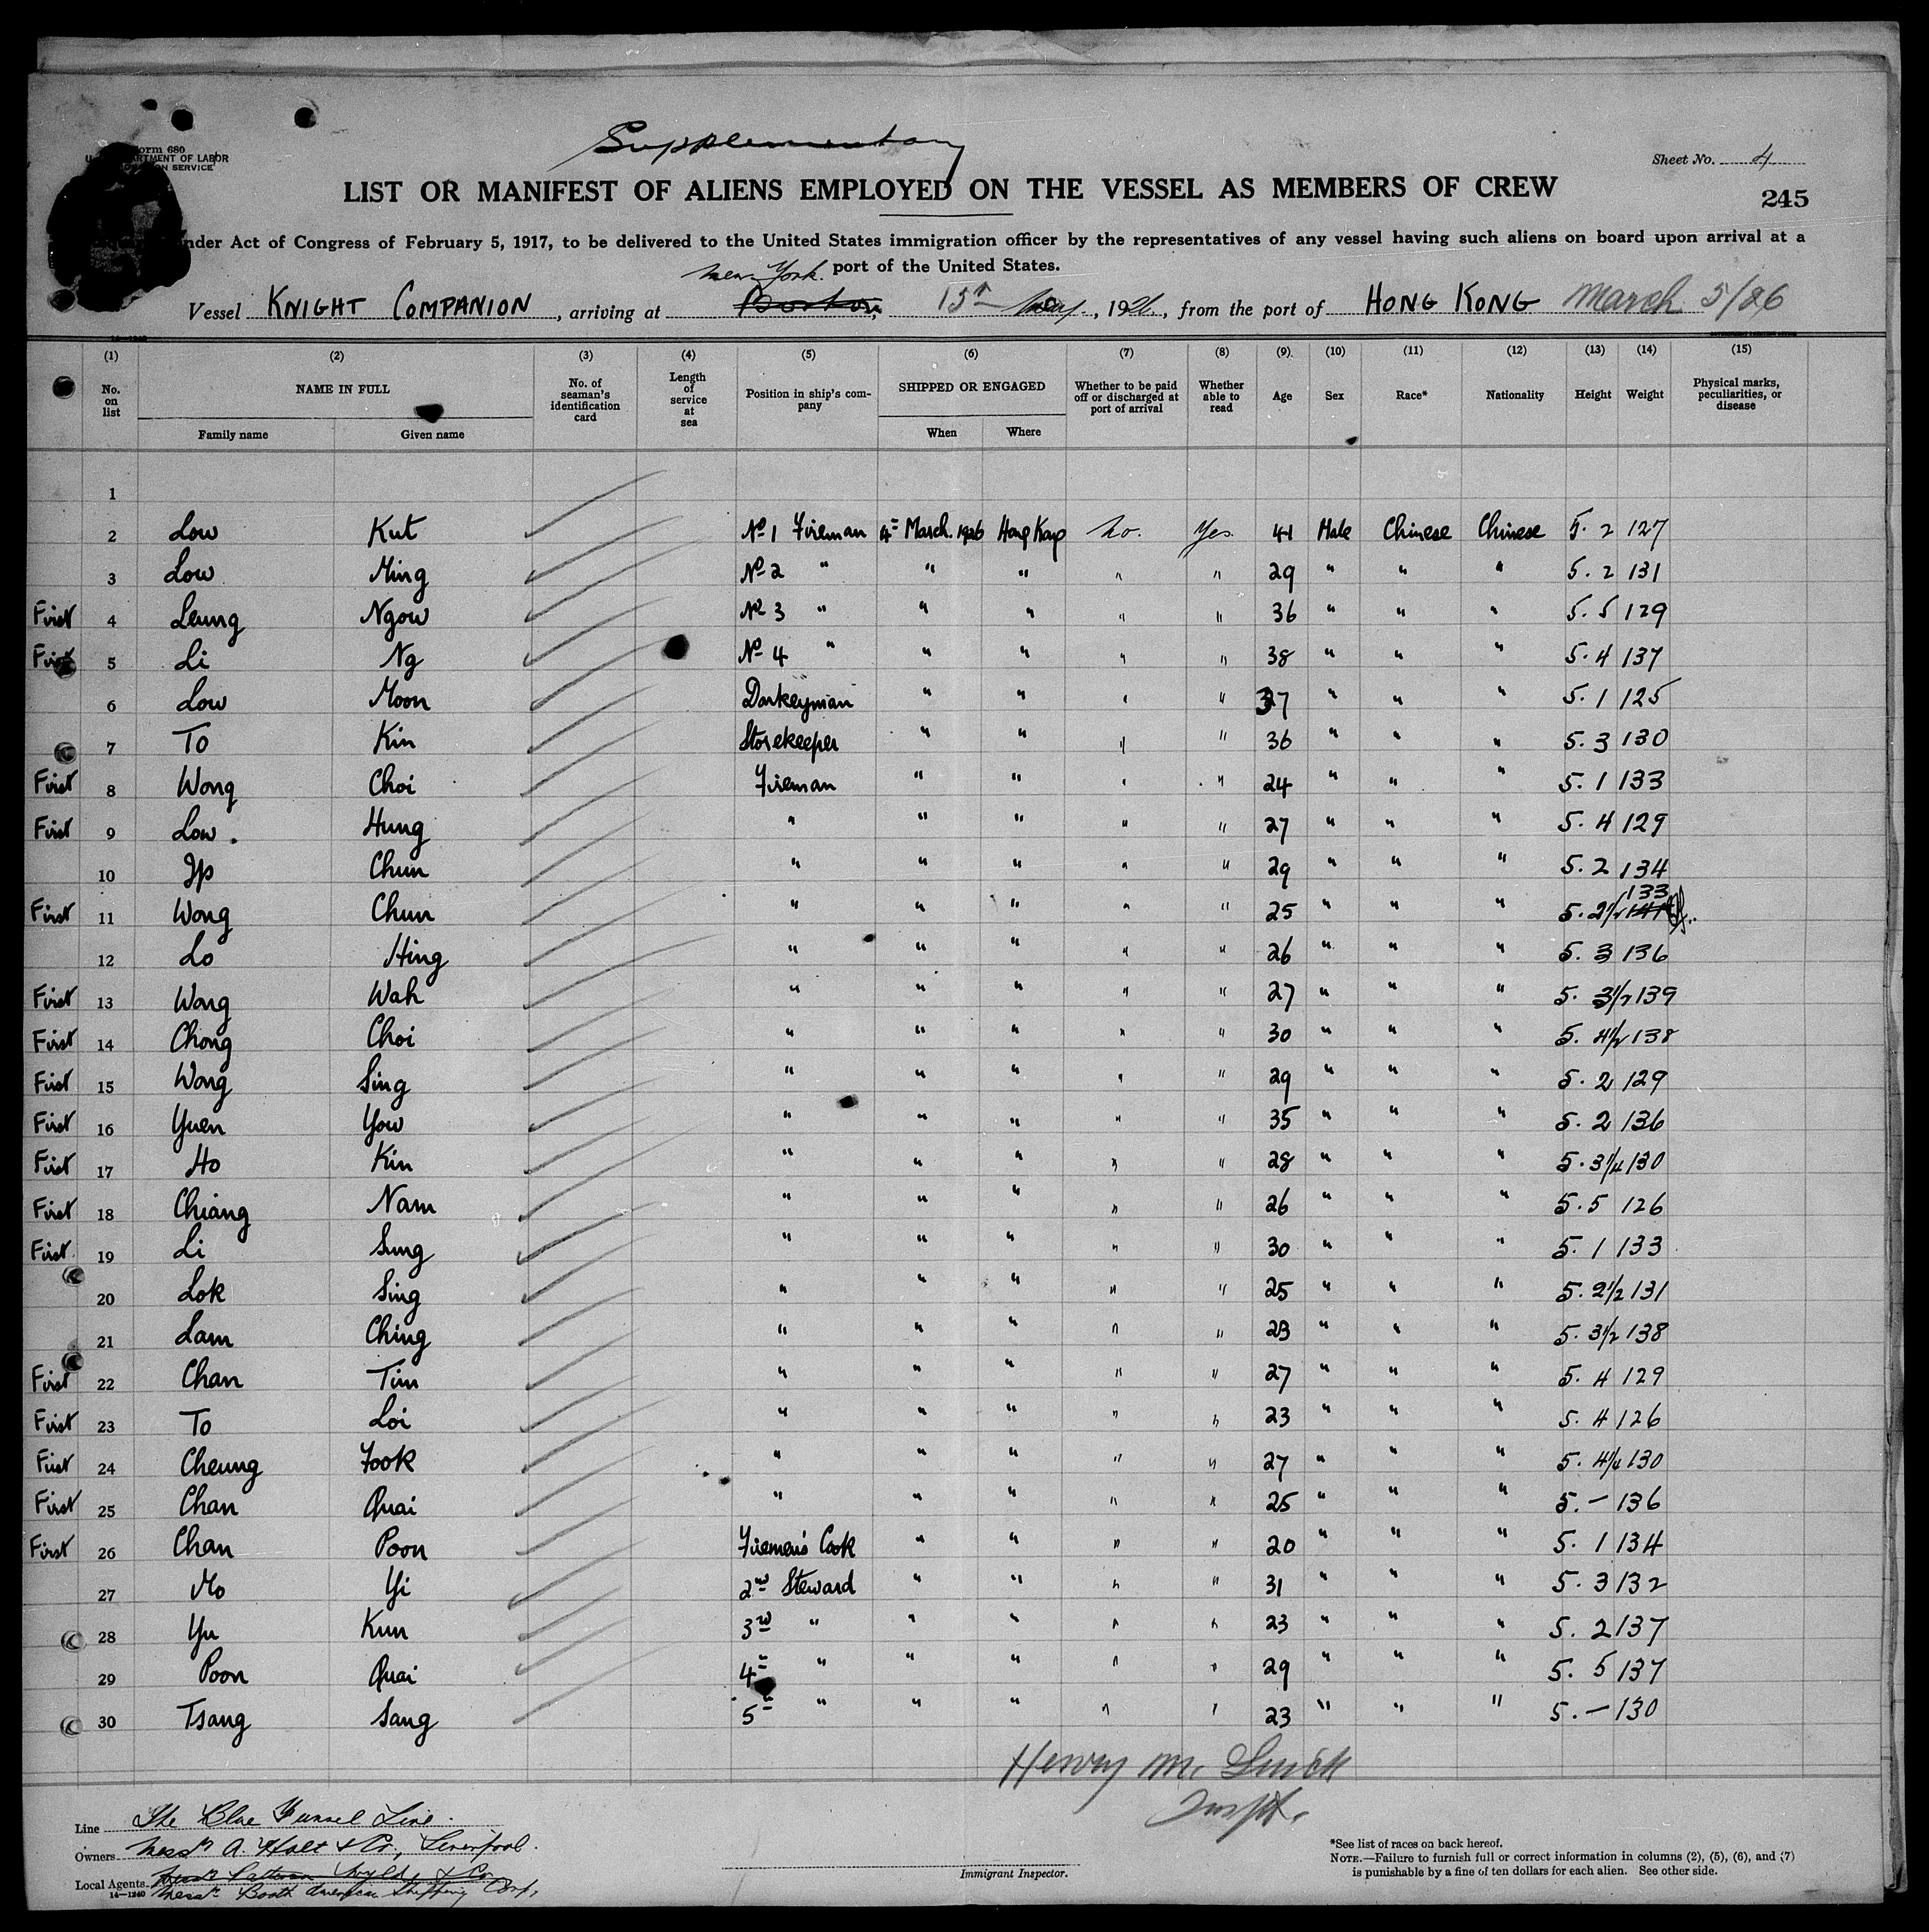 Form 680
U. S. DEPARTMENT OF LABOR
IMMIGRATION SERVICE
Supplementary
Sheet No. 4
LIST OR MANIFEST OF ALIENS EMPLOYED ON THE VESSEL AS MEMBERS OF CREW
245
Under Act of Congress of February 5, 1917, to be delivered to the United States immigration officer by the representatives of any vessel having such aliens on board upon arrival at a
port of the United States.
New York.
Vessel KNIGHT COMPANION, arriving at Boston, 15th May, 1926, from the port of HONG KONG March 5/26
(1) (2) (3) (4) (5) (6) (7) (8) (9) (10) (11) (12) (13) (14) (15)
No. on list NAME IN FULL Family name Given name No. of seaman's identification card Length of service at sea Position in ship's company SHIPPED OR ENGAGED When Where Whether to be paid off or discharged at port of arrival Whether able to read Age Sex Race* Nationality Height Weight Physical marks, peculiarities, or disease
1
2 Low Kut No 1 Fireman 4th March. 1926 Hong Kong No. Yes. 41 Male Chinese Chinese 5. 2 127
3 Low Ming No 2 " " " " " 29 " " " 5. 2 131
First 4 Leung Ngow No 3 " " " " " 36 " " " 5. 5 129
First 5 Li Ng No 4 " " " " " 38 " " " 5. 4 137
6 Low Moon Donkeyman " " " " 37 " " " 5. 1 125
7 To Kin Storekeeper " " " " 36 " " " 5. 3 130
First 8 Wong Choi Fireman " " " " 24 " " " 5. 1 133
First 9 Low. Hung " " " " " 27 " " " 5. 4 129
10 Ip Chun " " " " " 29 " " " 5. 2 134
First 11 Wong Chun " " " " " 25 " " " 5. 2 1/2 141 133
12 Lo Hing " " " " " 26 " " " 5. 3 136
First 13 Wong Wah " " " " " 27 " " " 5. 3 1/2 139
First 14 Chong Choi " " " " " 30 " " " 5. 4 1/2 138
First 15 Wong Sing " " " " " 29 " " " 5. 2 129
First 16 Yuen Yow " " " " " 35 " " " 5. 2 136
First 17 Ho Kin " " " " " 28 " " " 5. 3 1/4 130
First 18 Chiang Nam " " " " " 26 " " " 5. 5 126
First 19 Li Sung " " " " " 30 " " " 5. 1 133
20 Lok Sing " " " " " 25 " " " 5. 2 1/2 131
21 Lam Ching " " " " " 23 " " " 5. 3 1/2 138
First 22 Chan Tim " " " " " 27 " " " 5. 4 129
First 23 To Loi " " " " " 23 " " " 5. 4 126
First 24 Cheung Fook " " " " " 27 " " " 5. 4 1/4 130
First 25 Chan Quai " " " " " 25 " " " 5. - 136
First 26 Chan Poon Firemen's Cook " " " " 20 " " " 5. 1 134
27 Mo Yi 2nd Steward " " " " 31 " " " 5. 3 132
28 Yu Kun 3rd " " " " " 23 " " " 5. 2 137
29 Poon Quai 4th " " " " " 29 " " " 5. 5 137
30 Tsang Sang 5th " " " " " 23 " " " 5. - 130
Henry M.
Inspt.
Line The Blue Funnel Line.
Owners Messrs A. Holt & Co, Liverpool.
Local Agents Messrs Patterson Wylde & Co
Messrs Booth American Shipping Corp,
14-1240
Immigrant Inspector.
*See list of races on back hereof.
NOTE.—Failure to furnish full or correct information in columns (2), (5), (6), and (7)
is punishable by a fine of ten dollars for each alien. See other side.